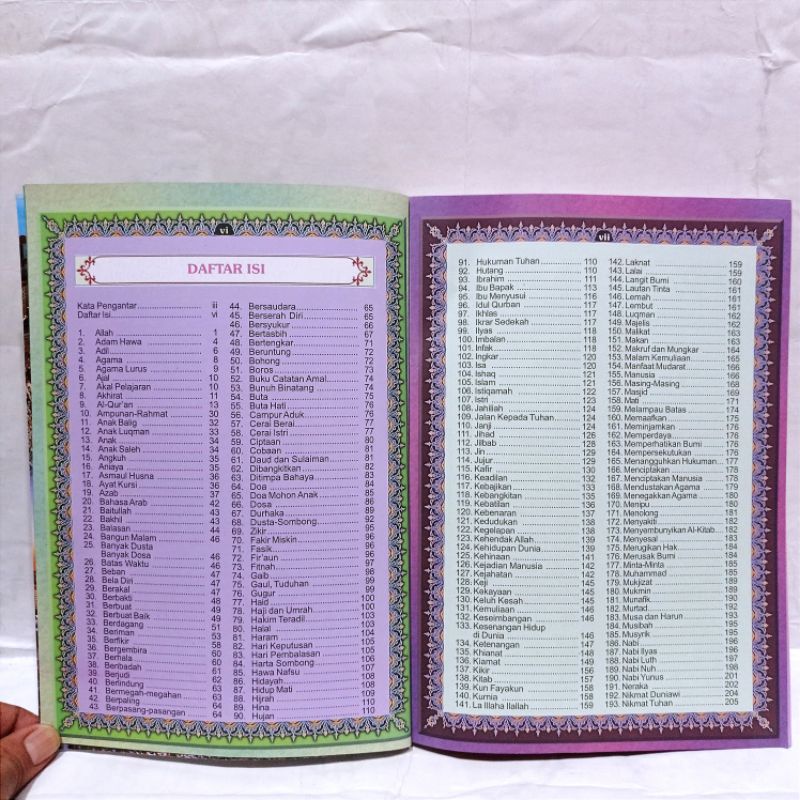 vi
DAFTAR ISI
Kata Pengantar iii
Daftar Isi vi
1. Allah 1
2. Adam Hawa 4
3. Adil 6
4. Agama 8
5. Agama Lurus 9
6. Ajal 10
7. Akal Pelajaran 10
8. Akhirat 11
9. Al-Qur'an 13
10. Ampunan-Rahmat 30
11. Anak Balig 32
12. Anak Luqman 33
13. Anak 34
14. Anak Saleh 34
15. Angkuh 35
16. Aniaya 35
17. Asmaul Husna 36
18. Ayat Kursi 36
19. Azab 37
20. Bahasa Arab 42
21. Baitullah 43
22. Bakhil 43
23. Balasan 44
24. Bangun Malam 46
25. Banyak Dusta
Banyak Dosa 46
26. Batas Waktu 46
27. Beban 47
28. Bela Diri 47
29. Berakal 47
30. Berbakti 48
31. Berbuat 49
32. Berbuat Baik 49
33. Berdagang 51
34. Beriman 53
35. Berfikir 58
36. Bergembira 60
37. Berhala 60
38. Beribadah 61
39. Berjudi 63
40. Berlindung 62
41. Bermegah-megahan 63
42. Berpaling 64
43. Berpasang-pasangan 64
44. Bersaudara 65
45. Berserah Diri 65
46. Bersyukur 66
47. Bertasbih 67
48. Bertengkar 71
49. Beruntung 72
50. Bohong 72
51. Boros 73
52. Buku Catatan Amal 74
53. Bunuh Binatang 74
54. Buta 76
55. Buta Hati 76
56. Campur Aduk 76
57. Cerai Berai 77
58. Cerai Istri 77
59. Ciptaan 80
60. Cobaan 81
61. Daud dan Sulaiman 81
62. Dibangkitkan 82
63. Ditimpa Bahaya 83
64. Doa 84
65. Doa Mohon Anak 85
66. Dosa 86
67. Durhaka 89
68. Dusta-Sombong 92
69. Zikir 94
70. Fakir Miskin 95
71. Fasik 96
72. Fir'aun 96
73. Fitnah 97
74. Gaib 99
75. Gaul, Tuduhan 99
76. Gugur 100
77. Haid 100
78. Haji dan Umrah 100
79. Hakim Teradil 103
80. Halal 103
81. Haram 104
82. Hari Keputusan 105
83. Hari Pembalasan 105
84. Harta Sombong 106
85. Hawa Nafsu 107
86. Hidayah 108
87. Hidup Mati 108
88. Hijrah 109
89. Hina 110
90. Hujan 110
vii
91. Hukuman Tuhan 110
92. Hutang 110
93. Ibrahim 111
94. Ibu Bapak 113
95. Ibu Menyusul 116
96. Idul Qurban 117
97. Ikhlas 117
98. Ikrar Sedekah 117
99. Ilyas 118
100. Imbalan 118
101. Infak 118
102. Ingkar 120
103. Isa 120
104. Ishaq 121
105. Islam 121
106. Istiqamah 122
107. Istri 123
108. Jahiliah 124
109. Jalan Kepada Tuhan 124
110. Janji 124
111. Jihad 126
112. Jilbab 128
113. Jin 129
114. Jujur 130
115. Kafir 130
116. Keadilan 132
117. Kebajikan 133
118. Kebangkitan 135
119. Kebatilan 136
120. Kebenaran 137
121. Kedudukan 138
122. Kegelapan 138
123. Kehendak Allah 139
124. Kehidupan Dunia 139
125. Kehinaan 141
126. Kejadian Manusia 142
127. Kejahatan 142
128. Keji 145
129. Kekayaan 145
130. Keluh Kesah 145
131. Kemuliaan 146
132. Keseimbangan 146
133. Kesenangan Hidup
di Dunia 146
134. Ketenangan 147
135. Khianat 148
136. Kiamat 149
137. Kikir 156
138. Kitab 157
139. Kun Fayakun 158
140. Kurnia 158
141. La Illaha Ilallah 159
142. Laknat 159
143. Lalai 159
144. Langit Bumi 160
145. Lautan Tinta 161
146. Lemah 161
147. Lembut 161
148. Luqman 162
149. Majelis 162
150. Malikat 163
151. Makan 163
152. Makruf dan Mungkar 164
153. Malam Kemuliaan 165
154. Manfaat Mudarat 166
155. Manusia 166
156. Masing-Masing 168
157. Masjid 169
158. Mati 171
159. Melampau Batas 174
160. Memaafkan 175
161. Meminjamkan 175
162. Memperdaya 175
163. Memperhatikan Bumi 176
164. Mempersekutukan 176
165. Menangguhkan Hukuman 177
166. Menciptakan 178
167. Menciptakan Manusia 178
168. Mendustakan Agama 179
169. Menegakkan Agama 179
170. Menipu 180
171. Menolong 181
172. Menyakiti 182
173. Menyembunyikan Al-Kitab 182
174. Menyesal 183
175. Merugikan Hak 184
176. Merusak Bumi 184
177. Minta-Minta 185
178. Muhammad 185
179. Mukjizat 189
180. Mukmin 189
181. Munafik 190
182. Murtad 192
183. Musa dan Harun 192
184. Musibah 194
185. Musyrik 195
186. Nabi 196
187. Nabi Ilyas 196
188. Nabi Luth 197
189. Nabi Nuh 198
190. Nabi Yunus 201
191. Neraka 202
192. Nikmat Duniawi 204
193. Nikmat Tuhan 205